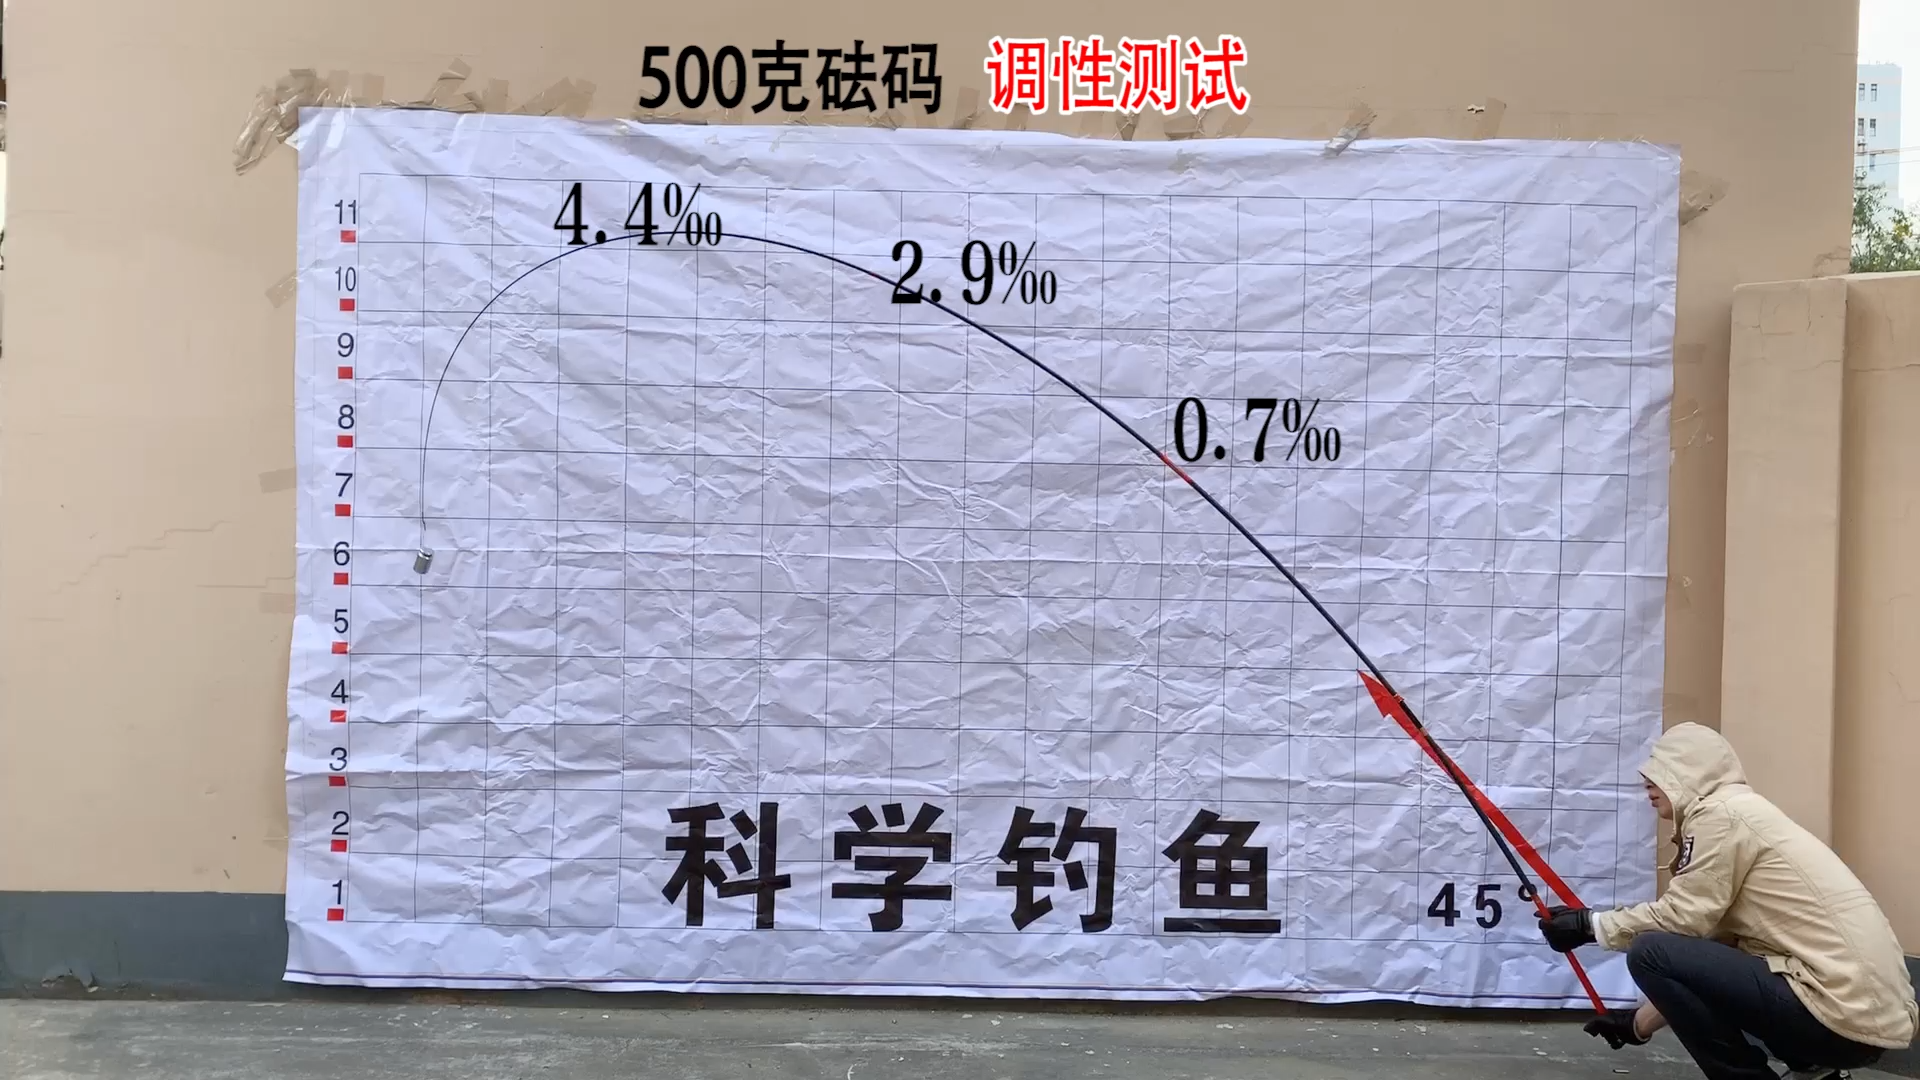 500克砝码 调性测试
4.4‰
2.9‰
0.7‰
11
10
9
8
7
6
5
4
3
2
1
科学钓鱼
45°